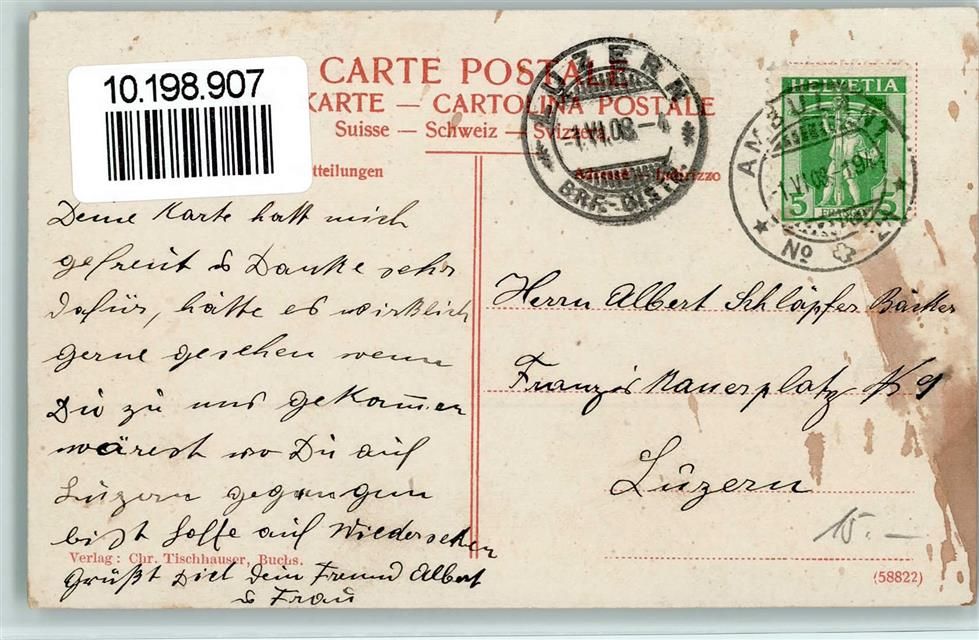 10.198.907
CARTE POSTALE
KARTE — CARTOLINA POSTALE
Suisse — Schweiz — Svizzera
tteilungen
Indirizzo
LUZERN
-1.VI.08.-4
BRF.-DIST.
AMBULANT
1.VI.08
No
HELVETIA
5 5
FRANCO
Deine Karte hatt mich
gefreut & Danke sehr
dafür, hätte es wirklich
gerne gesehen wenn
Du zu uns gekommen
wärest wo Du auf
Luzern gegangen
bist hoffe auf Wiedersehen
Grüßt Dich dein Freund Albert
& Frau
Herrn Albert Schläpfer Bäcker
Franziskanerplatz No 9
Luzern
15.—
Verlag: Chr. Tischhauser, Buchs.
(58822)